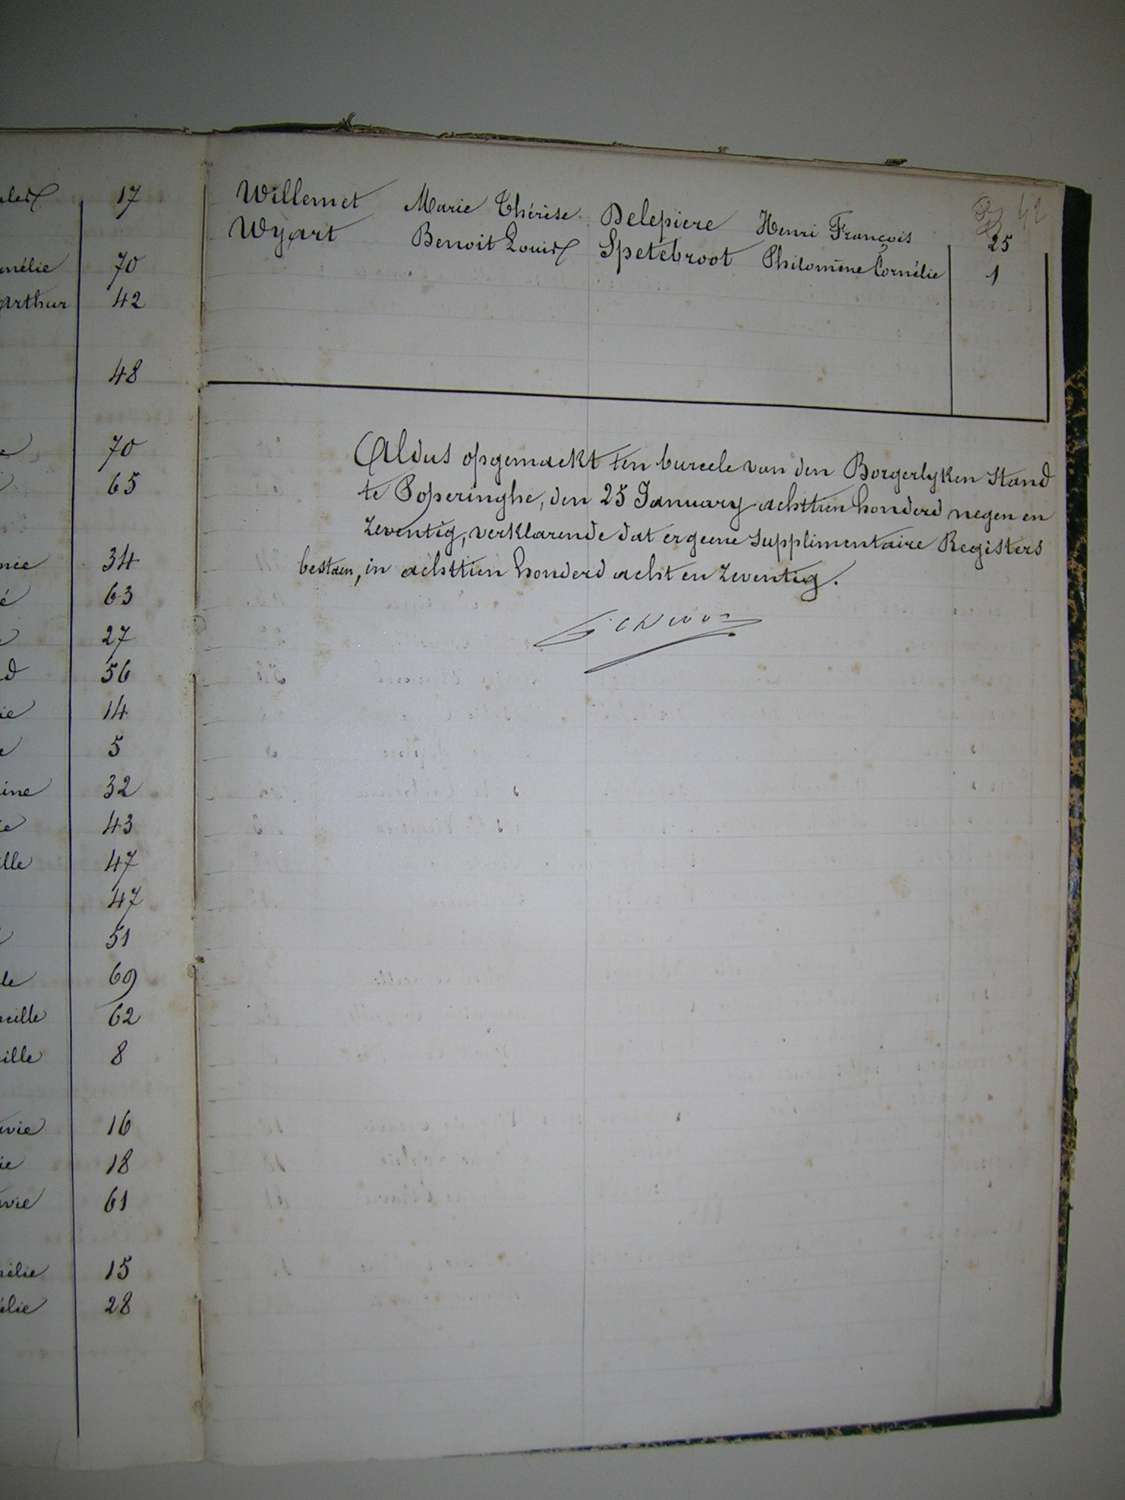 17
70
Arthur 42
48
70
65
34
63
27
56
14
5
32
43
47
47
51
69
62
8
16
18
61
15
28
42
Willemet Marie Thérèse Delepiere Henri François 25
Wyart Benoit Louis Spetebroot Philomène Cornélie 1
Aldus opgemaekt ten bureele van den Borgerlyken Stand
te Poperinghe, den 25 January achttien honderd negen en
Zeventig, verklarende dat er geene Supplimentaire Registers
bestaen, in achttien honderd acht en Zeventig.